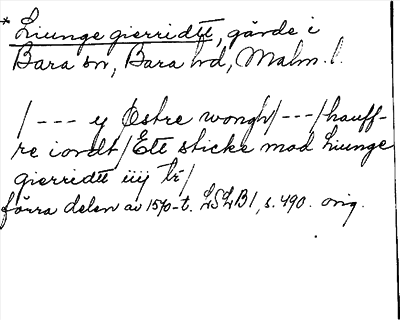 * Liunge gierridtt, gärde i
Bara sn, Bara hd, Malm. l.
/--- y Østre wongh/---/hauff-
re iordt/Ett sticke mod Liunge
gierridtt iiij
förra delen av 1570-t. LSLB1, s. 490. orig.